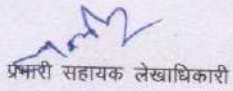 प्रभारी सहायक लेखाधिकारी